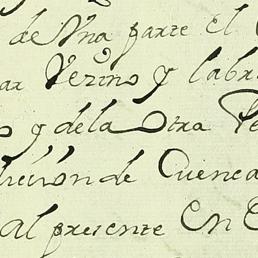 de Vna parte el
ar Vezino y labr
y dela Otra Pe
diccion de Cuenca
al presente En